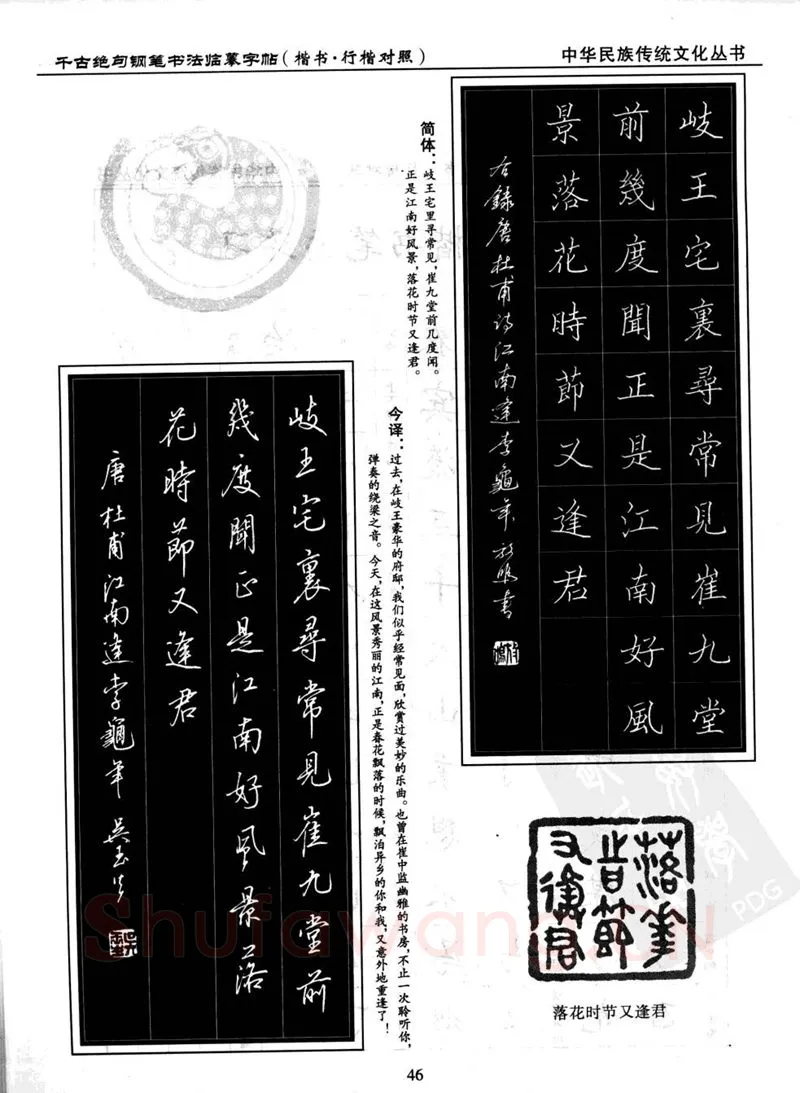 千古绝句钢笔书法临摹字帖（楷书·行楷对照）
中华民族传统文化丛书
岐王宅裏尋常見崔九堂
前幾度聞正是江南好風
景落花時節又逢君
右錄唐杜甫詩江南逢李龜年
书
简体：岐王宅里寻常见，崔九堂前几度闻。
正是江南好风景，落花时节又逢君。
今译：过去，在岐王豪华的府邸，我们似乎经常见面，欣赏过美妙的乐曲。也曾在崔中监幽雅的书房，不止一次聆听你，
弹奏的绕梁之音。今天，在这风景秀丽的江南，正是春花飘落的时候，飘泊异乡的你和我，又意外地重逢了！
岐王宅裏尋常見崔九堂前
幾度聞正是江南好風景落
花時節又逢君
唐杜甫江南逢李龜年 吴玉生
落花时节又逢君
46
Shufawang.CN
PDG